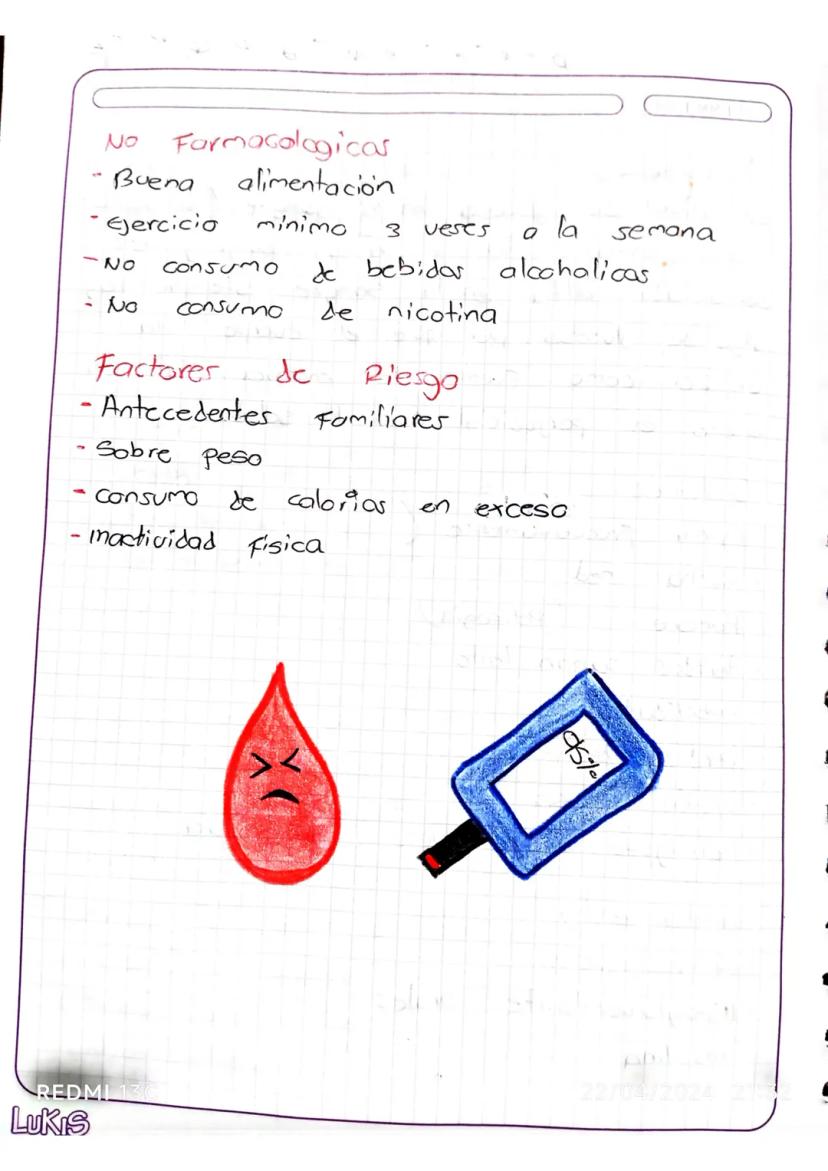 No Farmacologicas
- Buena alimentación
- Ejercicio minimo 3 veses a la semana
- No consumo de bebidas alcoholicas
- No consumo de nicotina
Factores de Riesgo
- Antecedentes Familiares
- Sobre peso
- consumo de calorias en exceso
- inactividad Fisica
95%
REDMI 13C
22/04/2024 21:32
LUKIS